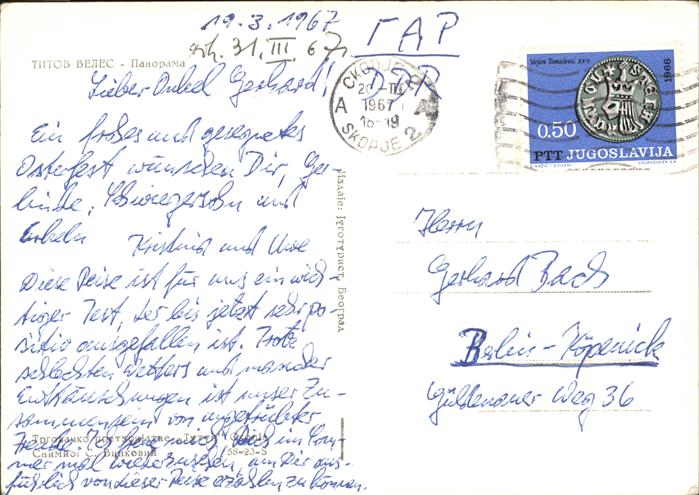 19.3.1967
31. III. 67
ГАР
DDR
ТИТОВ ВЕЛЕС - Панорама
Lieber Onkel Gerhard!
Ein frohes und gesegnetes
Osterfest wünschen Dir, Ger-
linde, Schwiegersohn und
Enkeln Kristina und Uwe
Diese Reise ist für uns ein wich-
tiger Test, der bis jetzt sehr po-
sitiv ausgefallen ist. Trotz
schlechten Wetters und mancher
Enttäuschungen ist unser Zu-
sammensein von ungetrübter
Freude. Ich
freue mich, Dich im Som-
mer mal wiederzusehen, um Dir aus-
führlich von dieser Reise erzählen zu können.
Снимио: С.
58-23-S
Издаје: Југотурист, Београд
СКОПЈЕ 2
20 III
1967
18-19
A A
SKOPJE 2
Stjepan Tomašević XV v.
1966
0.50
PTT JUGOSLAVIJA
Herrn
Gerhard Bach
Berlin-Köpenick
Güldenauer Weg 36